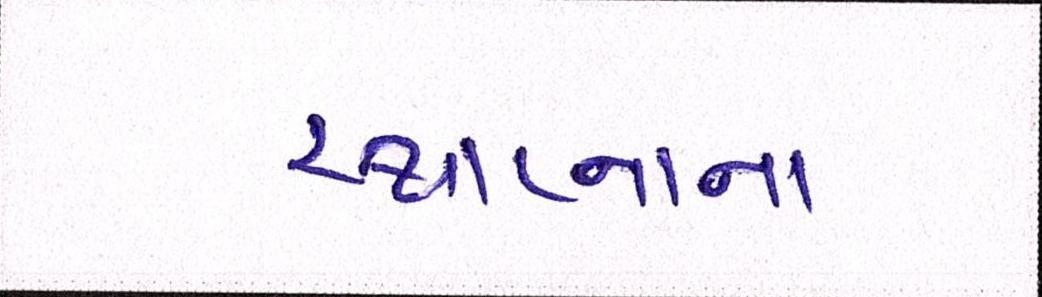 સ્થાપનાના